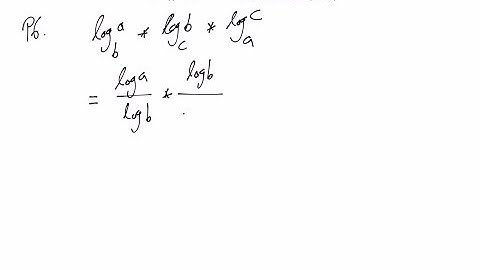 Pb. log_b a * log_c b * log_a c
= log a / log b * log b /